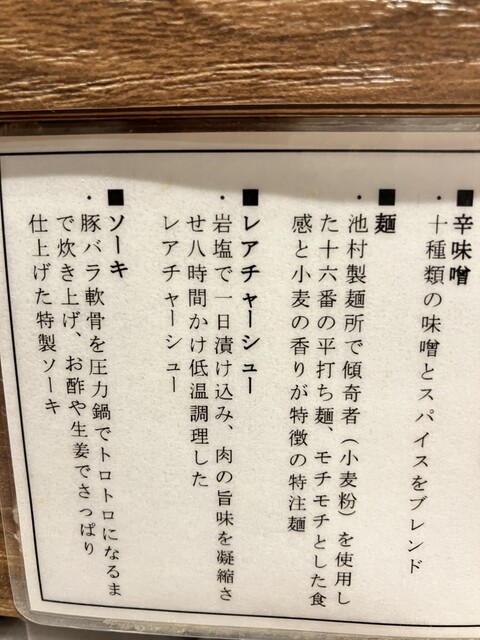 ■辛味噌
・十種類の味噌とスパイスをブレンド
■麺
・池村製麺所で傾奇者（小麦粉）を使用し
た十六番の平打ち麺、モチモチとした食
感と小麦の香りが特徴の特注麺
■レアチャーシュー
・岩塩で一日漬け込み、肉の旨味を凝縮さ
せ八時間かけ低温調理した
レアチャーシュー
■ソーキ
・豚バラ軟骨を圧力鍋でトロトロになるま
で炊き上げ、お酢や生姜でさっぱり
仕上げた特製ソーキ